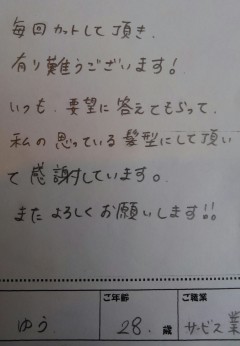 毎回カットして頂き、
有り難うございます!
いつも、要望に答えてもらって、
私の思っている髪型にして頂い
て感謝しています。
またよろしくお願いします!!
ご年齢 ご職業
ゆう 28. 歳 サービス業